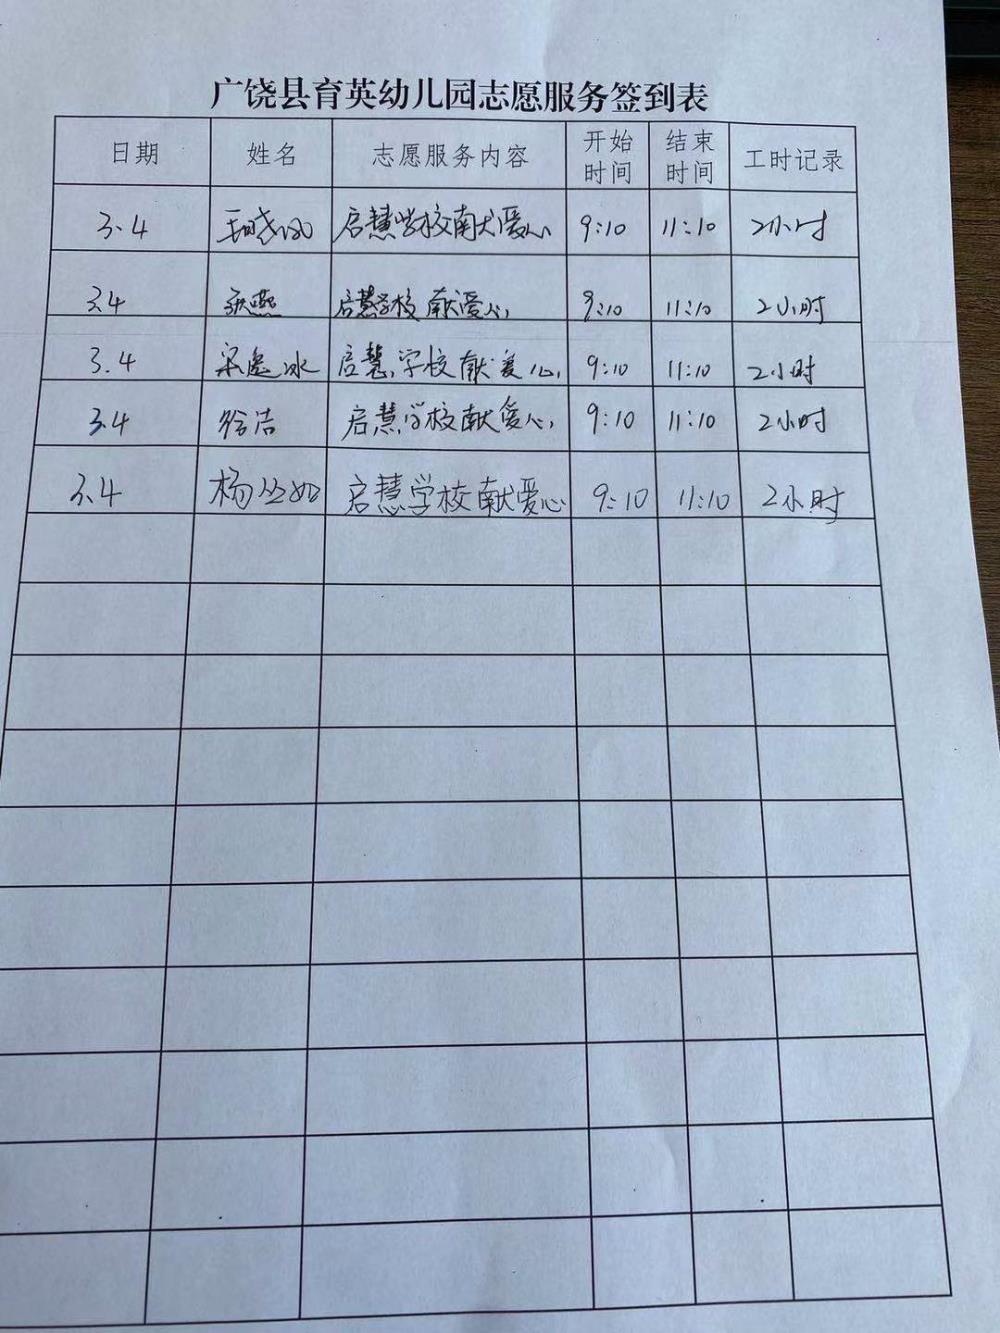 广饶县育英幼儿园志愿服务签到表
日期 姓名 志愿服务内容 开始时间 结束时间 工时记录
3.4 启慧学校献爱心 9:10 11:10 2小时
3.4 启慧学校献爱心, 9:10 11:10 2小时
3.4 启慧学校献爱心, 9:10 11:10 2小时
3.4 徐洁 启慧学校献爱心, 9:10 11:10 2小时
3.4 杨丛如 启慧学校献爱心 9:10 11:10 2小时